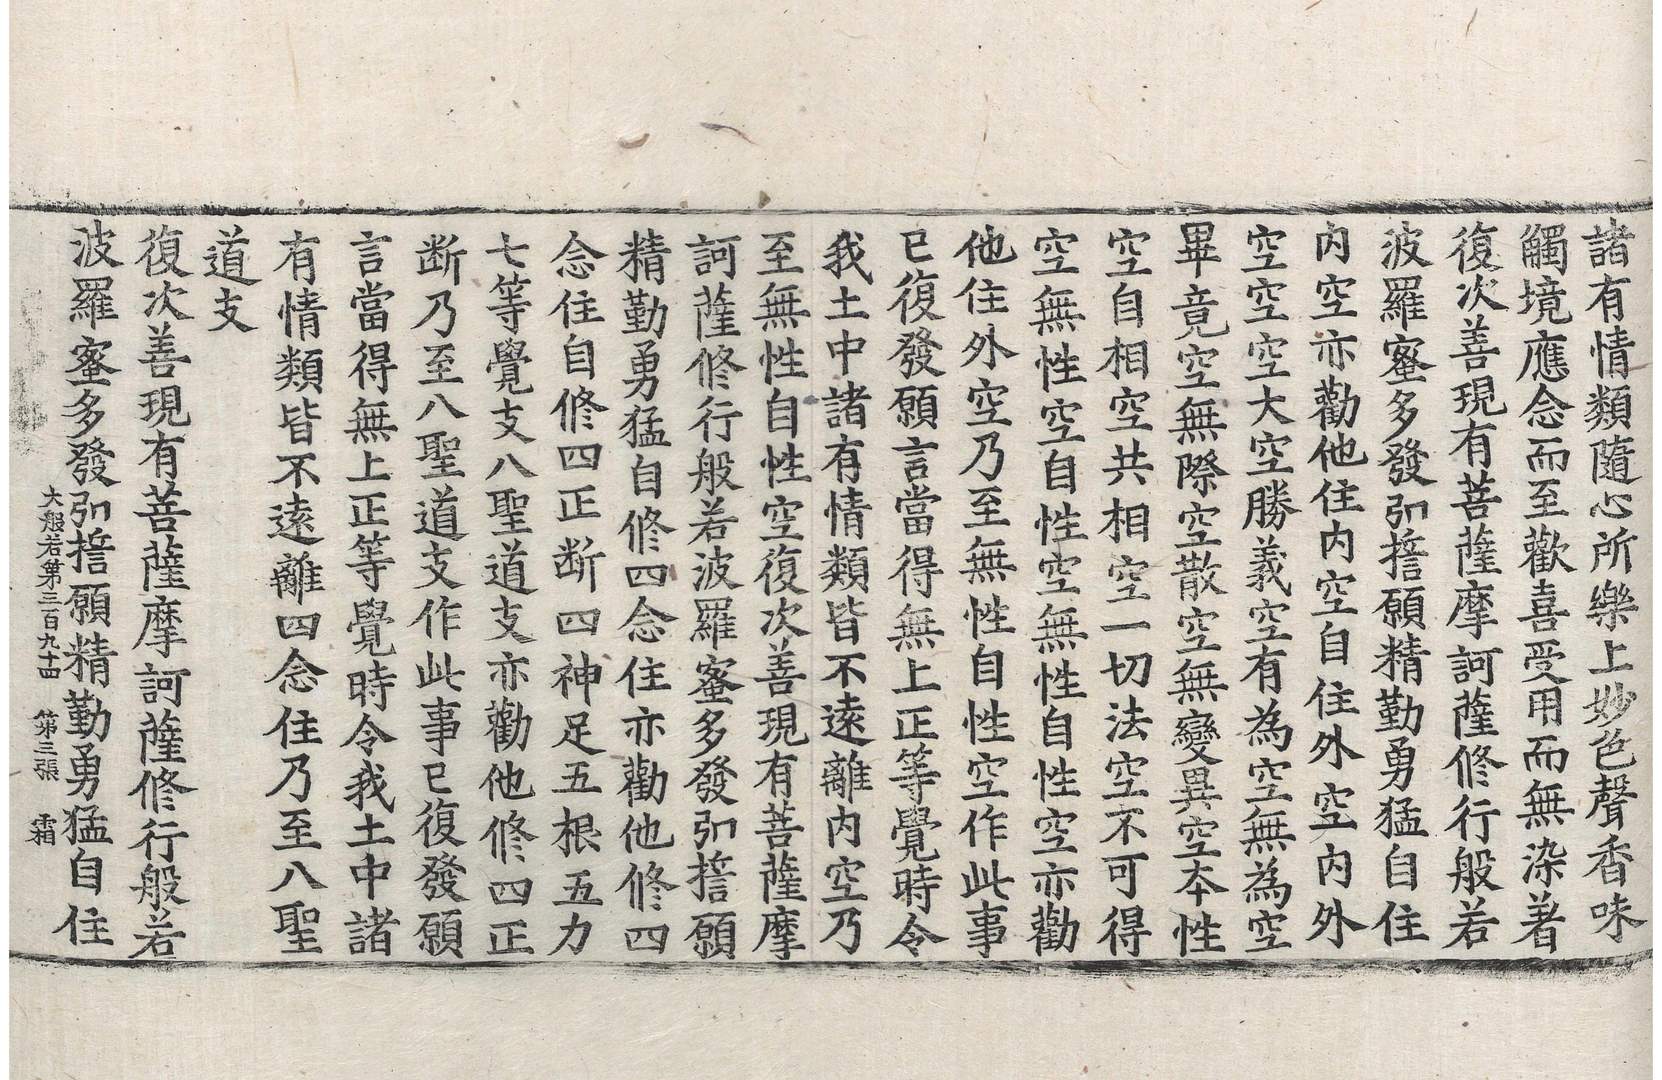 諸有情類隨心所樂上妙色聲香味
觸境應念而至歡喜受用而無染著
復次善現有菩薩摩訶薩修行般若
波羅蜜多發弘誓願精勤勇猛自住
內空亦勸他住內空自住外空內外
空空空大空勝義空有為空無為空
畢竟空無際空散空無變異空本性
空自相空共相空一切法空不可得
空無性空自性空無性自性空亦勸
他住外空乃至無性自性空作此事
已復發願言當得無上正等覺時令
我土中諸有情類皆不遠離內空乃
至無性自性空復次善現有菩薩摩
訶薩修行般若波羅蜜多發弘誓願
精勤勇猛自修四念住亦勸他修四
念住自修四正斷四神足五根五力
七等覺支八聖道支亦勸他修四正
斷乃至八聖道支作此事已復發願
言當得無上正等覺時令我土中諸
有情類皆不遠離四念住乃至八聖
道支
復次善現有菩薩摩訶薩修行般若
波羅蜜多發弘誓願精勤勇猛自住
大般若第三百九十四 第三張 霜